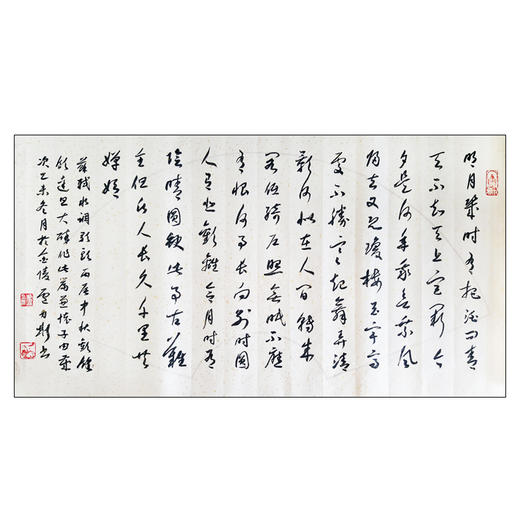 明月幾时有把酒问青
天不知天上宫阙今
夕是何年我欲乘风
归去又恐瓊楼玉宇高
处不胜寒起舞弄清
影何似在人间转朱
阁低绮户照无眠不应
有恨何事长向别时圆
人有悲歡離合月时有
陰晴圆缺此事古難
全但愿人長久千里共
嬋娟
蘇軾水调歌头丙辰中秋歡
达旦大醉作此篇兼怀子由歲
次乙未冬月於金陵